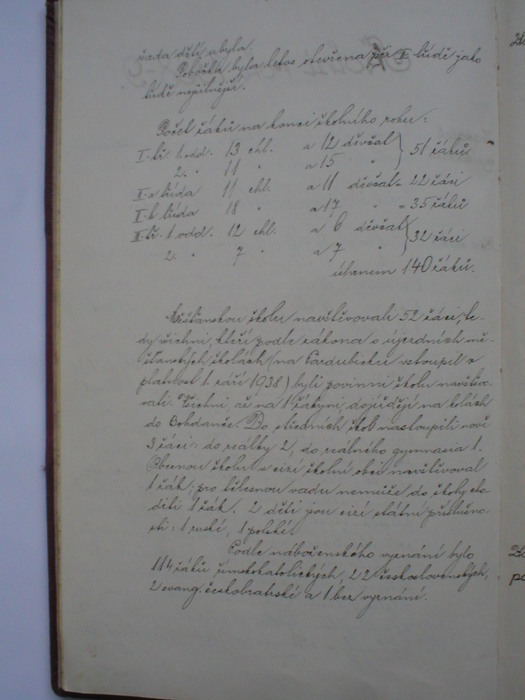 řada dětí ubyla.
Pobočka byla letos otevřena při II. třídě jako
třídě nejsilnější.
Počet žáků na konci školního roku:
I. tř. 1. odd. 13 chl. a 12 děvčat } 51 žáků
2. " 11 " a 15 "
II. a třída 11 chl. a 11 děvčat = 22 žáci
II. b třída 18 " a 17 " = 35 žáků
III. tř. 1. odd. 12 chl. a 6 děvčat } 32 žáci
2. " 7 " a 7 "
úhrnem 140 žáků.
Měšťanskou školu navštěvovali 52 žáci, te-
dy všichni, kteří podle zákona o újezdních mě-
šťanských školách (na Pardubicku vstoupil v
platnost 1. září 1938) byli povinni školu navštěvo-
vati. Všichni, až na 1 žákyni, dojíždějí na kolách
do Bohdanče. Do středních škol nastoupili noví
3 žáci: do reálky 2, do reálného gymnasia 1.
Obecnou školu v cizí školní obci navštěvoval
1 žák; pro tělesnou vadu nemůže do školy cho-
diti 1 žák. 2 děti jsou cizí státní příslušno-
sti: 1 ruské, 1 polské.
Podle náboženského vyznání bylo
114 žáků římskokatolických, 22 československých,
2 evang. českobratrské a 1 bez vyznání.